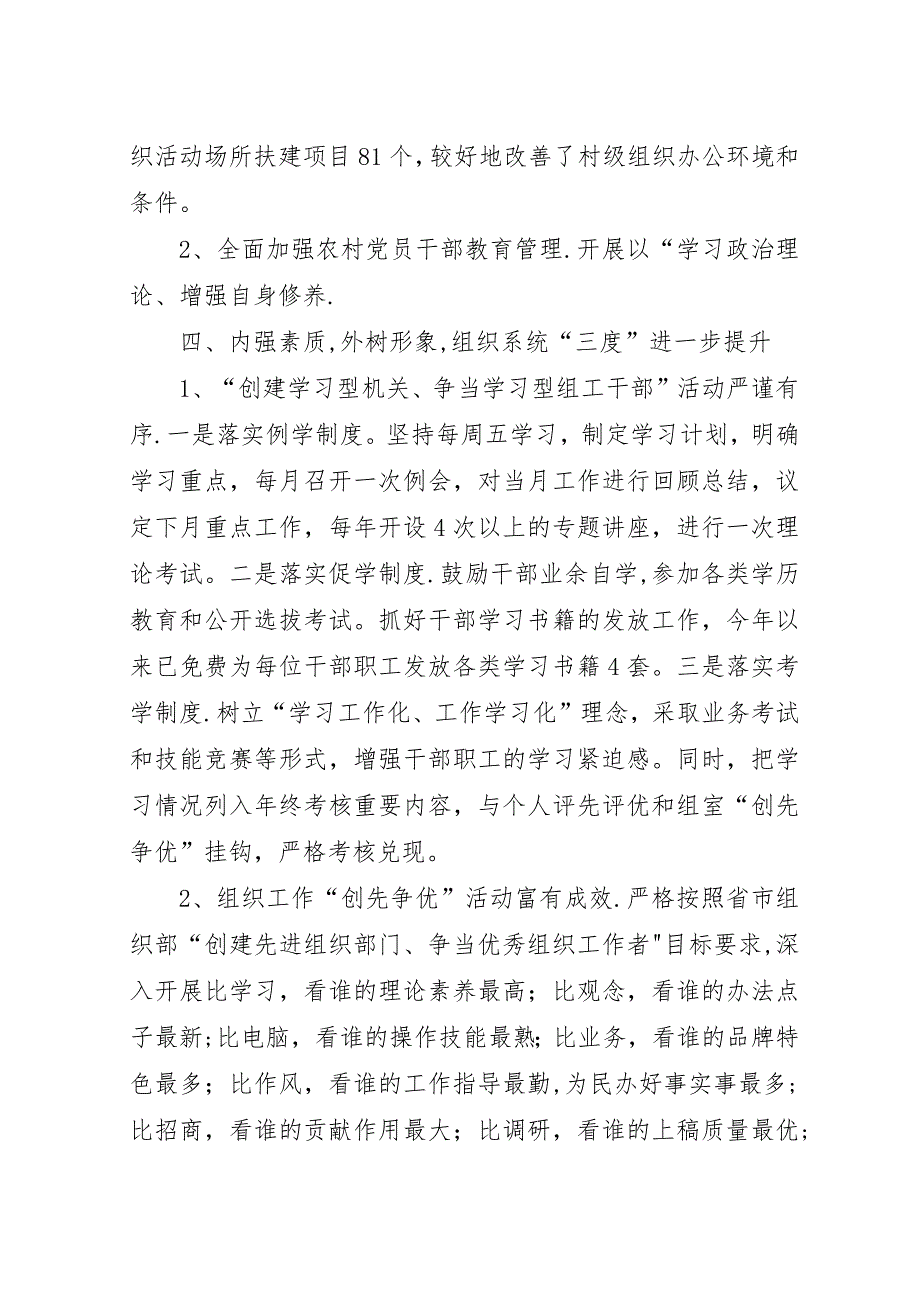 织活动场所扶建项目81个,较好地改善了村级组织办公环境和
条件。
2、全面加强农村党员干部教育管理.开展以“学习政治理
论、增强自身修养.
四、内强素质,外树形象,组织系统“三度”进一步提升
1、“创建学习型机关、争当学习型组工干部”活动严谨有
序.一是落实例学制度。坚持每周五学习，制定学习计划，明确
学习重点，每月召开一次例会，对当月工作进行回顾总结，议
定下月重点工作，每年开设4次以上的专题讲座，进行一次理
论考试。二是落实促学制度.鼓励干部业余自学,参加各类学历
教育和公开选拔考试。抓好干部学习书籍的发放工作，今年以
来已免费为每位干部职工发放各类学习书籍4套。三是落实考
学制度.树立“学习工作化、工作学习化”理念，采取业务考试
和技能竞赛等形式，增强干部职工的学习紧迫感。同时，把学
习情况列入年终考核重要内容，与个人评先评优和组室“创先
争优”挂钩，严格考核兑现。
2、组织工作“创先争优”活动富有成效.严格按照省市组
织部“创建先进组织部门、争当优秀组织工作者"目标要求,深
入开展比学习，看谁的理论素养最高；比观念，看谁的办法点
子最新;比电脑，看谁的操作技能最熟；比业务，看谁的品牌特
色最多；比作风，看谁的工作指导最勤,为民办好事实事最多;
比招商，看谁的贡献作用最大；比调研，看谁的上稿质量最优;